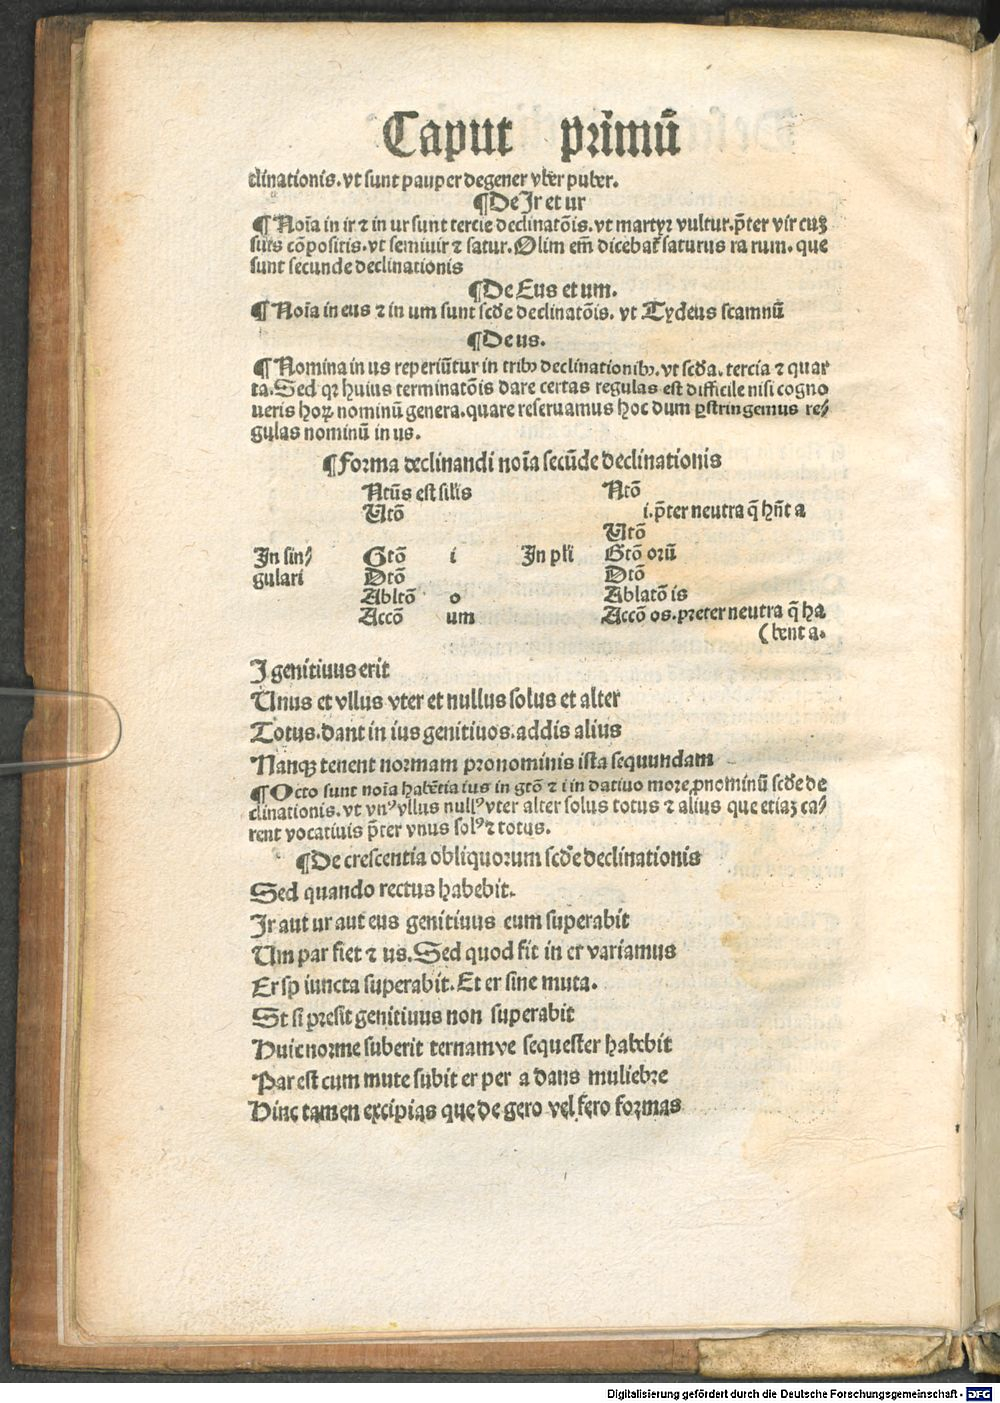 Caput prímū
clinationis. vt sunt pauper degener vber puber.
¶De Ir et ur
¶Noīa in ir ⁊ in ur sunt tercie declinatōis. vt martyr vultur. p̄ter vir cuȝ
suis cōpositis. vt semiuir ⁊ satur. Olim em̄ dicebat̄ saturus ra rum. que
sunt secunde declinationis
¶De Eus et um.
¶Noīa in eus ⁊ in um sunt scd̄e declinatōis. vt Tydeus scamnū
¶De us.
¶Nomina in us reperiūtur in tribꝰ declinationibꝰ. vt scd̄a. tercia ⁊ quar
ta. Sed qꝛ huius terminatōis dare certas regulas est difficile nisi cogno
ueris hoꝝ nominū genera. quare reseruamus hoc dum ꝑstringemus re⸗
gulas nominū in us.
¶Forma declinandi noīa secūde declinationis
Ntūs est sīlis Ntō
Utō i. p̄ter neutra q̄ hn̄t a
Utō
In sin⸗ Gtō i In pli Gtō orū
gulari Dtō Dtō
Abltō o Ablatō is
Accō um Accō os. preter neutra q̄ ha
(bent a.
I genitiuus erit
Unus et vllus vter et nullus solus et alter
Totus. dant in ius genitiuos. addis alius
Nanqꝫ tenent normam pronominis ista sequundam
¶Octo sunt noīa habētia ius in gtō ⁊ i in datiuo more ꝓnominū scd̄e de
clinationis. vt vnꝰ vllus nullꝰ vter alter solus totus ⁊ alius que etiaȝ ca⸗
rent vocatiuis p̄ter vnus solꝰ ⁊ totus.
¶De crescentia obliquorum scd̄e declinationis
Sed quando rectus habebit.
Ir aut ur aut eus genitiuus eum superabit
Um par fiet ⁊ us. Sed quod fit in er variamus
Er sp iuncta superabit. Et er sine muta.
St si presit genitiuus non superabit
Huic norme suberit ternamve sequester habebit
Par est cum mute subit er per a dans muliebre
Hinc tamen excipias que de gero vel fero formas
Digitalisierung gefördert durch die Deutsche Forschungsgemeinschaft - DFG